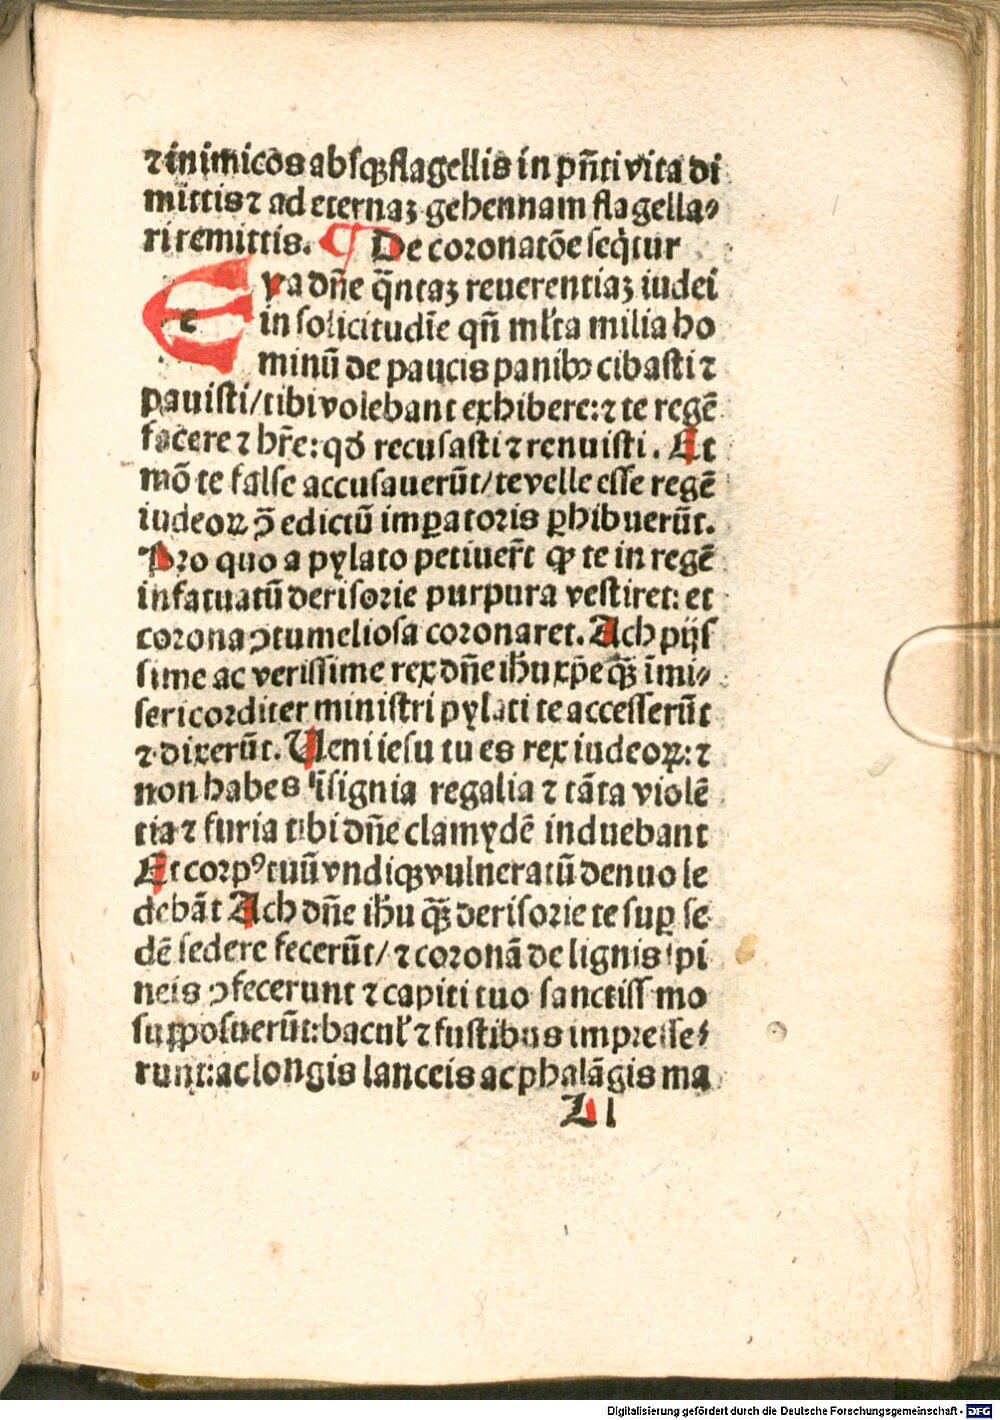 ⁊ inimicos absqꝫ flagellis in pn̄ti vita di
mittis ⁊ ad eternaꝫ gehennam flagella⸗
ri remittis. ¶ De coronatōe seq̇tur
Eya dn̄e q̄ntaꝫ reuerentiaꝫ iudei
in solicitudīe qn̄ ml̄ta milia ho
minū de paucis panibꝰ cibasti ⁊
pauisti/ tibi volebant exhibere: ⁊ te regē
facere ⁊ hr̄e: qđ recusasti ⁊ renuisti. Et
mō te false accusauerūt/ te velle esse regē
iudeoꝝ ꝯ̄ edictū imꝑatoris ꝑhibuerūt.
Pro quo a pylato petiuer̄t ꝙ te in regē
infatuatū derisorie purpura vestiret: et
corona ꝯtumeliosa coronaret. Ach pijs
sime ac verissime rex dn̄e ih̄u xp̄e qꝫ̄ īmi⸗
sericorditer ministri pylati te accesserūt
⁊ dixerūt. Ueni iesu tu es rex iudeoꝝ: ⁊
non habes īsignia regalia ⁊ tāta violē
tia ⁊ furia tibi dn̄e clamydē induebant
Et corpꝰ tuū vndiqꝫ vulneratū denuo le
debāt Ach dn̄e ih̄u qꝫ̄ derisorie te suꝑ se
dē sedere fecerūt/ ⁊ coronā de lignis spi
neis ꝯfecerunt ⁊ capiti tuo sanctissimo
suꝑposuerūt: bacul̄ ⁊ fustibus impresse⸗
runt: ac longis lanceis ac phalāgis ma
L l
Digitalisierung gefördert durch die Deutsche Forschungsgemeinschaft - DFG